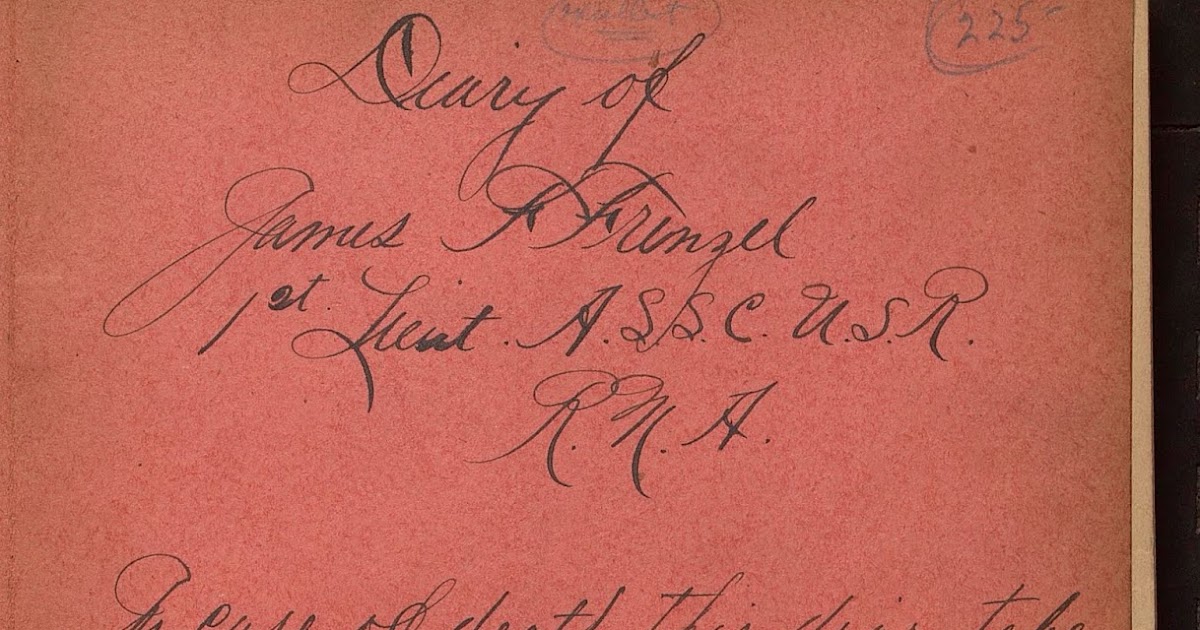 225-
Diary of
James F Frenzel
1st. Lieut. A.S.S.C. U.S.R.
R.M.A.
In case of death this diary to be